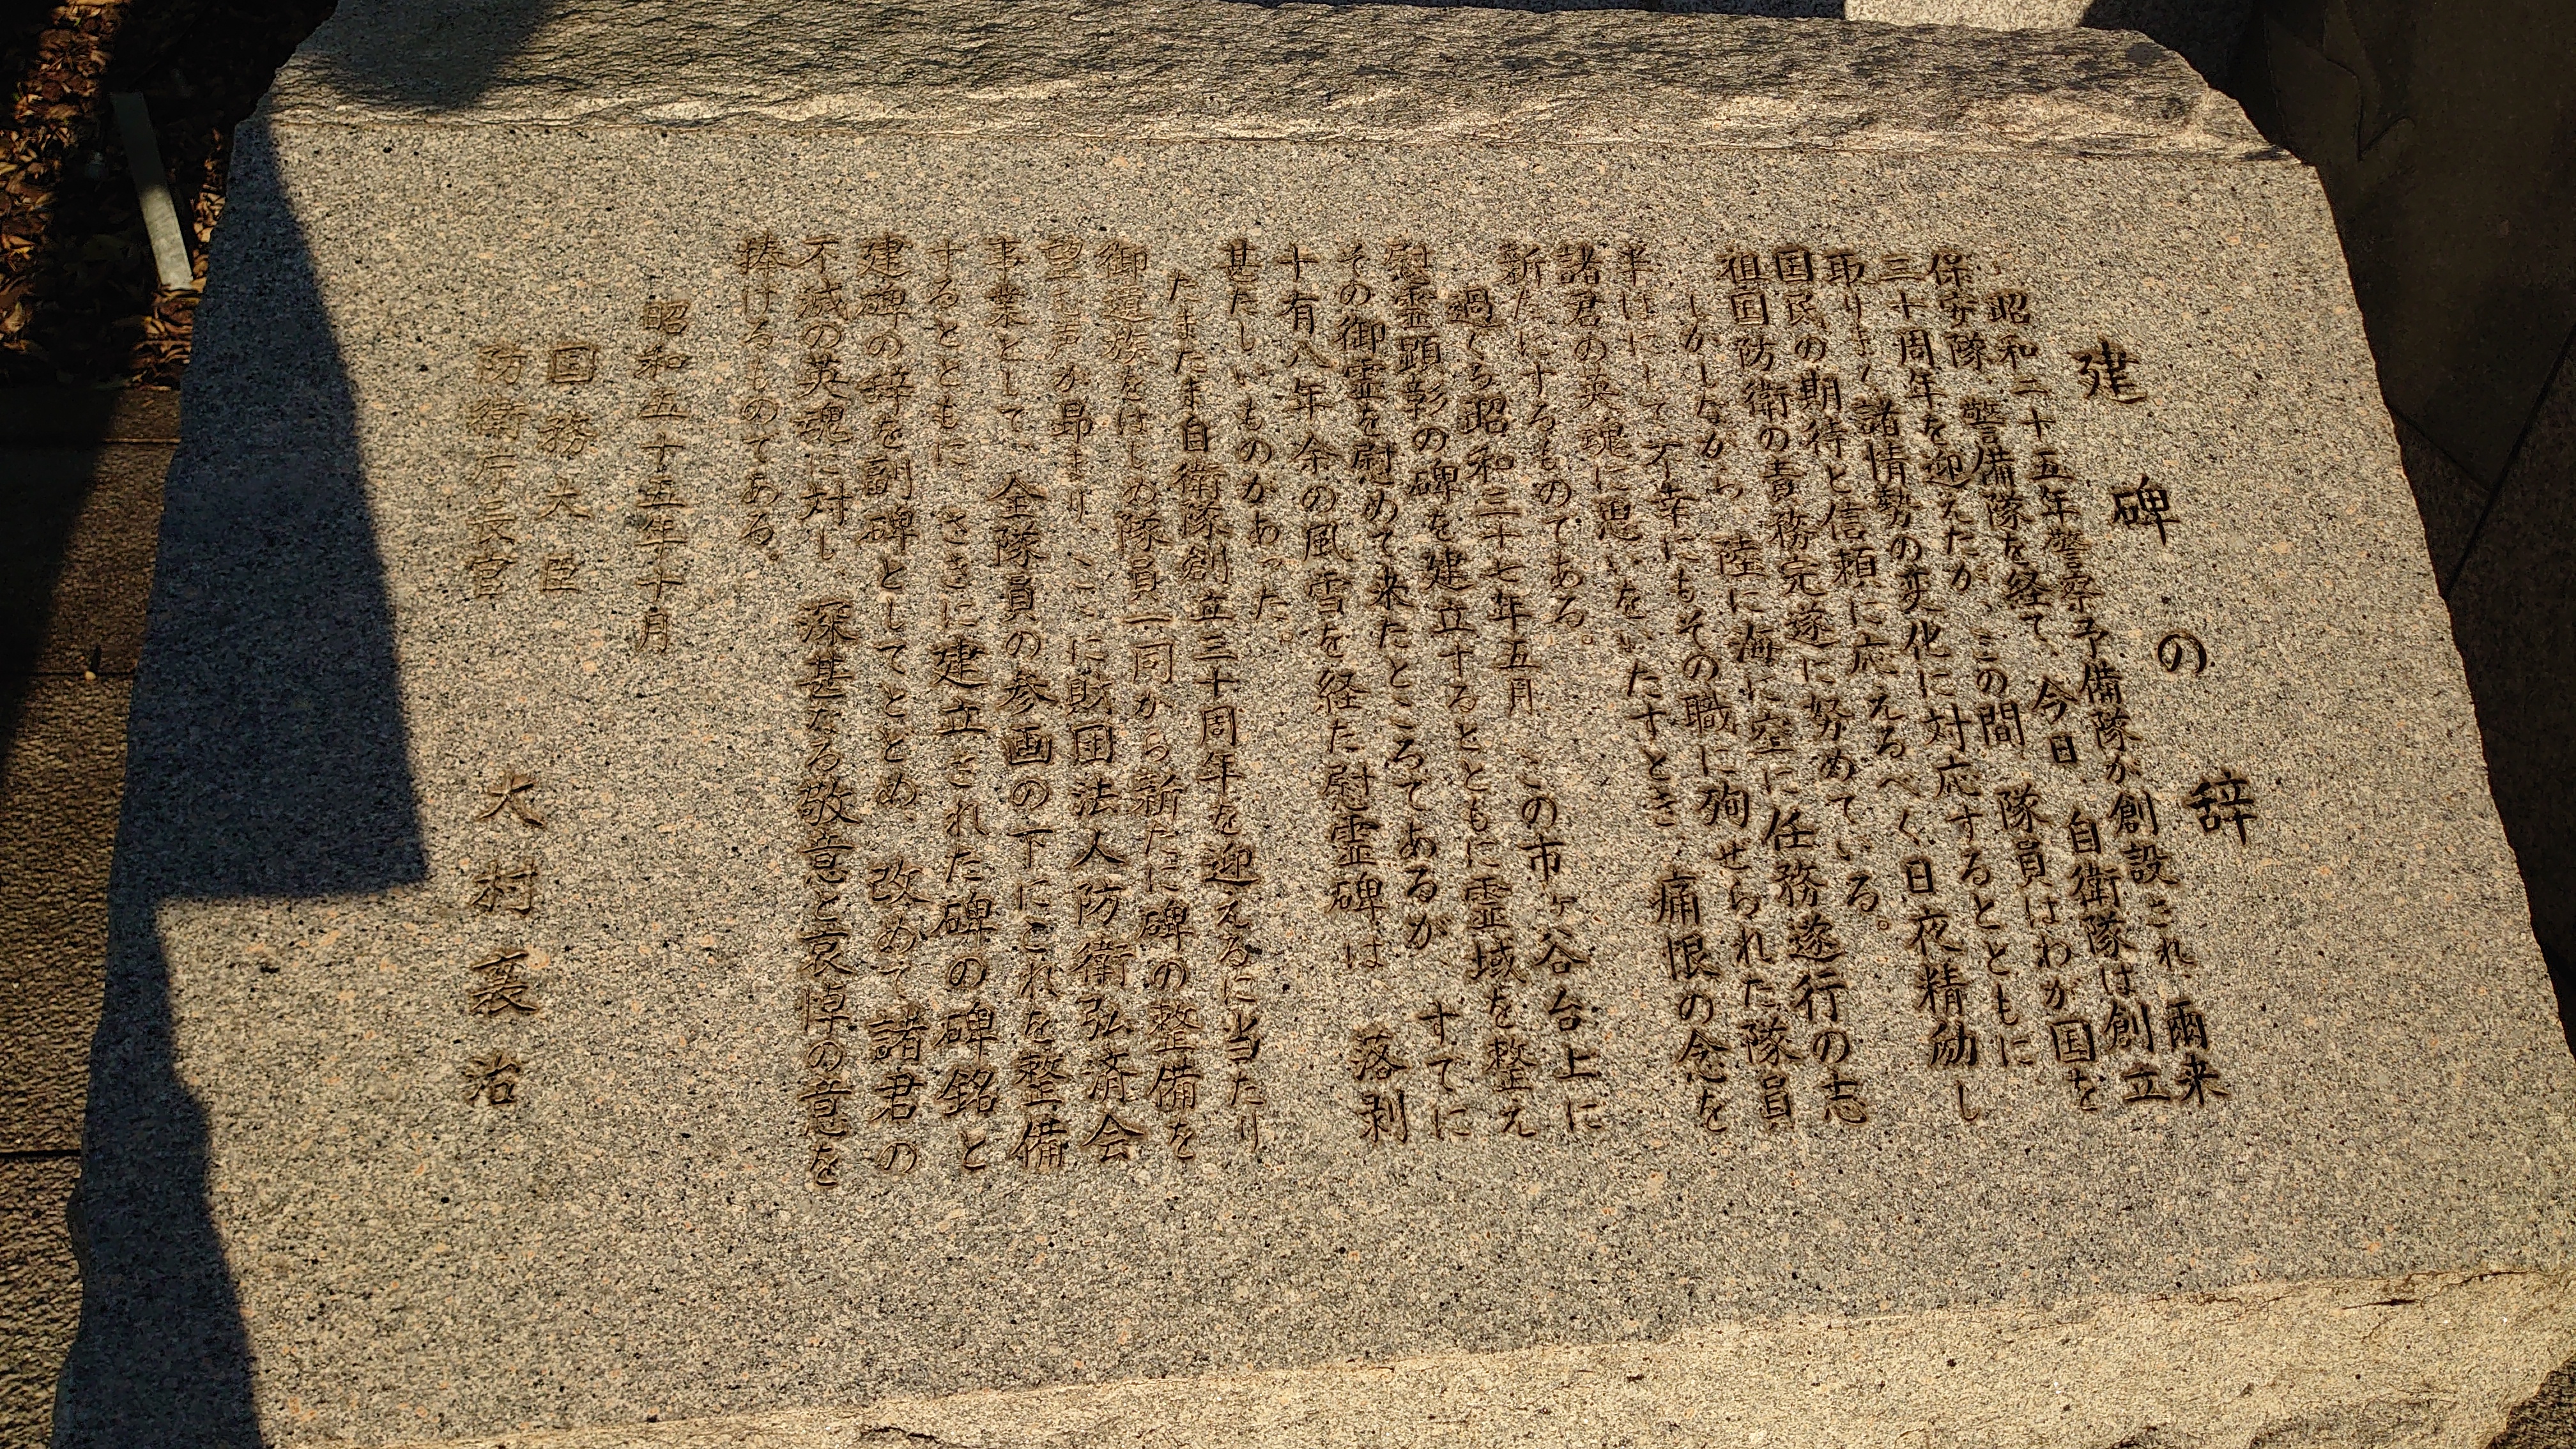 建碑の辞
昭和二十五年警察予備隊が創設され爾来
保安隊、警備隊を経て、今日、自衛隊は創立
三十周年を迎えたが、この間、隊員はわが国を
取りまく諸情勢の変化に対応するとともに、
国民の期待と信頼に応えるべく、日夜精励し
祖国防衛の責務完遂に努めている。
しかしながら、陸に海に空に任務遂行の志
半ばにして不幸にもその職に殉ぜられた隊員
諸君の英魂に思いをいたすとき、痛恨の念を
新たにするものである。
過ぐる昭和三十七年五月、この市ヶ谷台上に
慰霊顕彰の碑を建立するとともに霊域を整え
その御霊を慰めて来たところであるが、すでに
十有八年余の風雪を経た慰霊碑は、落剥
甚だしいものがあった。
たまたま自衛隊創立三十周年を迎えるに当たり
御遺族をはじめ隊員一同から新たに碑の整備を
望む声が昂まり、ここに財団法人防衛弘済会
事業として、全隊員の参画の下にこれを整備
するとともに、さきに建立された碑の碑銘と
建碑の辞を副碑としてとどめ、改めて諸君の
不滅の英魂に対し、深甚なる敬意と哀悼の意を
捧げるものである。
昭和五十五年十月
国務大臣
防衛庁長官 大村襄治